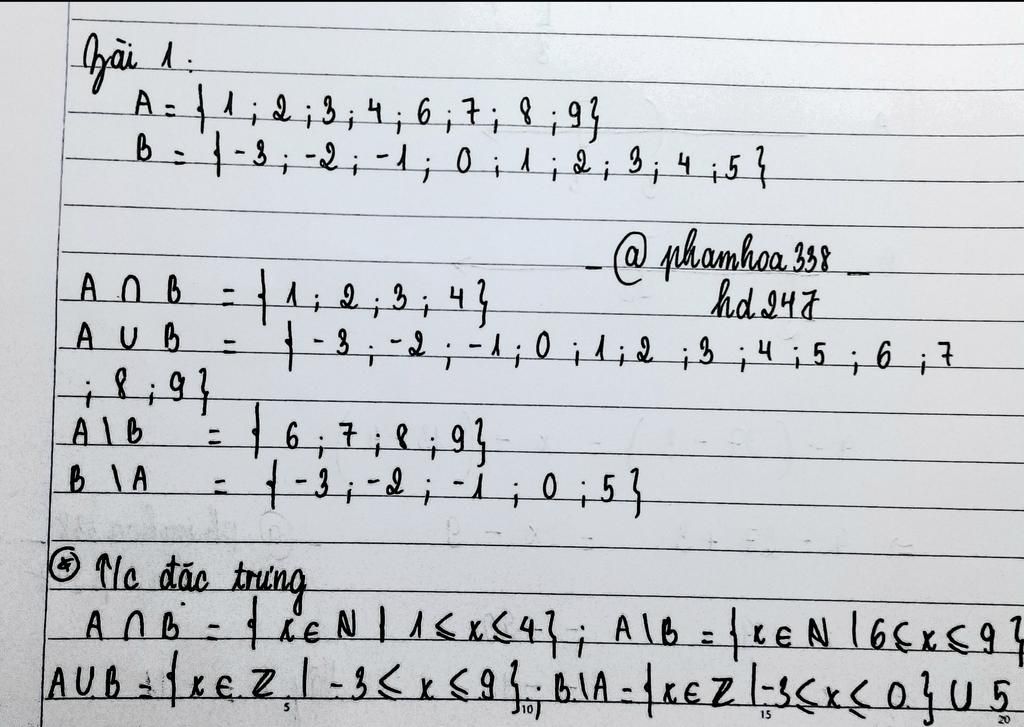 Bài 1.
A = { 1 ; 2 ; 3 ; 4 ; 6 ; 7 ; 8 ; 9 }
B = { -3 ; -2 ; -1 ; 0 ; 1 ; 2 ; 3 ; 4 ; 5 }
- @ phamhoa338 -
hd247
A ∩ B = { 1 ; 2 ; 3 ; 4 }
A ∪ B = { -3 ; -2 ; -1 ; 0 ; 1 ; 2 ; 3 ; 4 ; 5 ; 6 ; 7
; 8 ; 9 }
A \ B = { 6 ; 7 ; 8 ; 9 }
B \ A = { -3 ; -2 ; -1 ; 0 ; 5 }
* T/c đặc trưng
A ∩ B = { x ∈ N | 1 ≤ x ≤ 4 } ; A \ B = { x ∈ N | 6 ≤ x ≤ 9 }
A ∪ B = { x ∈ Z | -3 ≤ x ≤ 9 } ; B \ A = { x ∈ Z | -3 ≤ x ≤ 0 } ∪ 5
5 10 15 20